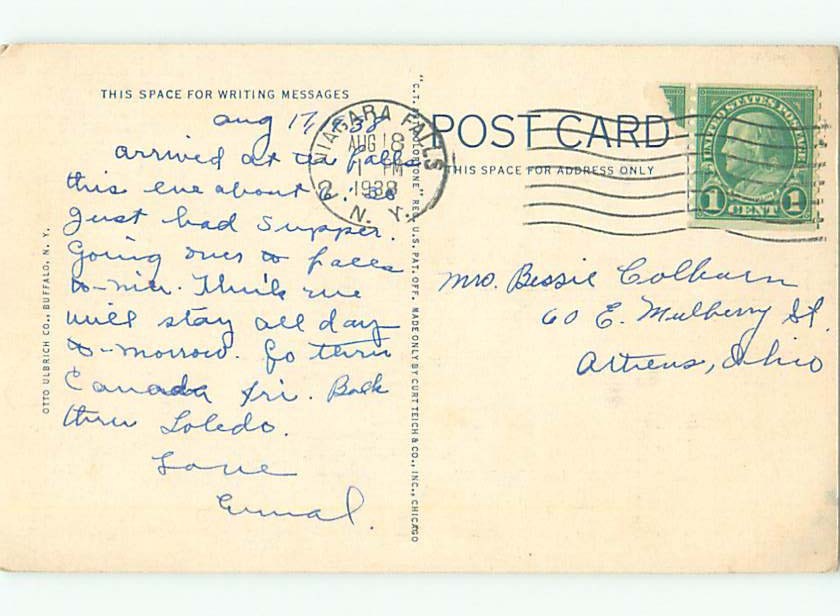 THIS SPACE FOR WRITING MESSAGES
Aug 17, 1938
Arrived at the falls
this eve about 6:30
Just had supper.
Going over to falls
to-nite. Think we
will stay all day
to-morrow. Go thru
Canada Fri. Back
thru Toledo.
Love
Ermal.
OTTO ULBRICH CO., BUFFALO, N. Y.
"C.T. COLORTONE" REG. U.S. PAT. OFF. MADE ONLY BY CURT TEICH & CO., INC., CHICAGO
NIAGARA FALLS
AUG 18
1 PM
1938
2
N. Y.
POST CARD
THIS SPACE FOR ADDRESS ONLY
UNITED STATES POSTAGE
1 CENT 1
Mrs. Bessie Colburn
60 E. Mulberry St.
Athens, Ohio